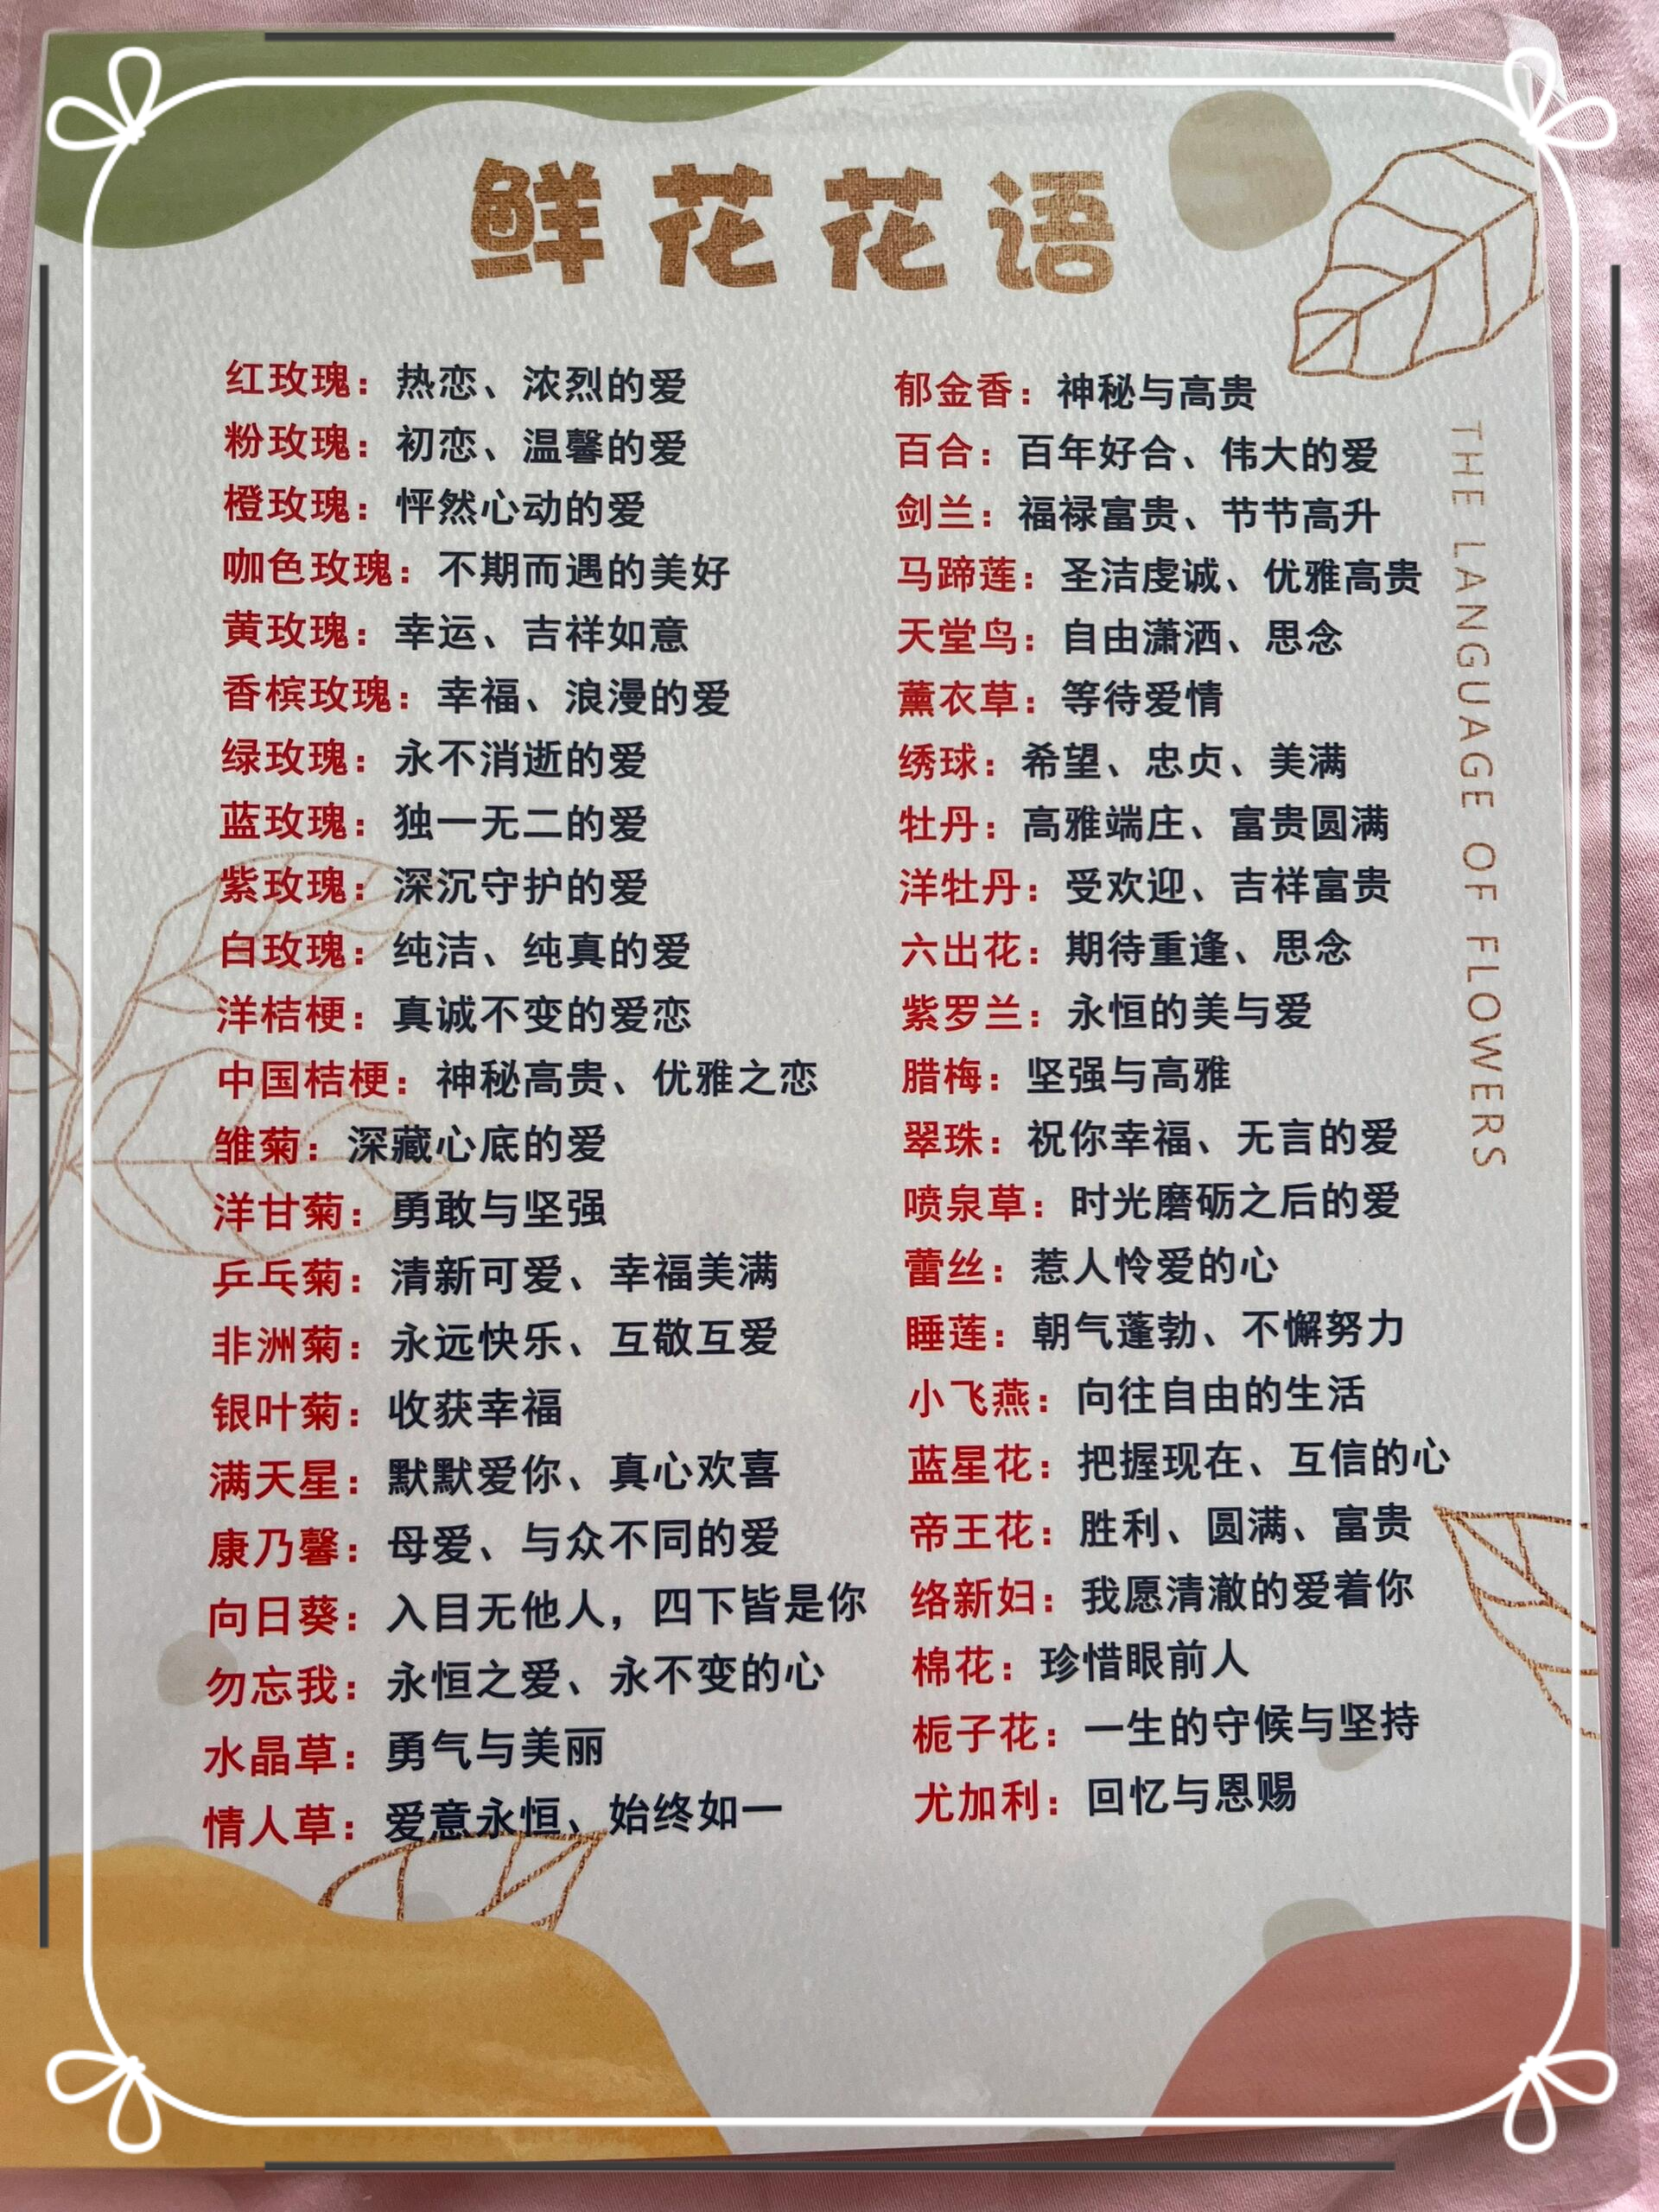 鲜花花语
红玫瑰：热恋、浓烈的爱
粉玫瑰：初恋、温馨的爱
橙玫瑰：怦然心动的爱
咖色玫瑰：不期而遇的美好
黄玫瑰：幸运、吉祥如意
香槟玫瑰：幸福、浪漫的爱
绿玫瑰：永不消逝的爱
蓝玫瑰：独一无二的爱
紫玫瑰：深沉守护的爱
白玫瑰：纯洁、纯真的爱
洋桔梗：真诚不变的爱恋
中国桔梗：神秘高贵、优雅之恋
雏菊：深藏心底的爱
洋甘菊：勇敢与坚强
乒乓菊：清新可爱、幸福美满
非洲菊：永远快乐、互敬互爱
银叶菊：收获幸福
满天星：默默爱你、真心欢喜
康乃馨：母爱、与众不同的爱
向日葵：入目无他人，四下皆是你
勿忘我：永恒之爱、永不变的心
水晶草：勇气与美丽
情人草：爱意永恒、始终如一
郁金香：神秘与高贵
百合：百年好合、伟大的爱
剑兰：福禄富贵、节节高升
马蹄莲：圣洁虔诚、优雅高贵
天堂鸟：自由潇洒、思念
薰衣草：等待爱情
绣球：希望、忠贞、美满
牡丹：高雅端庄、富贵圆满
洋牡丹：受欢迎、吉祥富贵
六出花：期待重逢、思念
紫罗兰：永恒的美与爱
腊梅：坚强与高雅
翠珠：祝你幸福、无言的爱
喷泉草：时光磨砺之后的爱
蕾丝：惹人怜爱的心
睡莲：朝气蓬勃、不懈努力
小飞燕：向往自由的生活
蓝星花：把握现在、互信的心
帝王花：胜利、圆满、富贵
络新妇：我愿清澈的爱着你
棉花：珍惜眼前人
栀子花：一生的守候与坚持
尤加利：回忆与恩赐
THE LANGUAGE OF FLOWERS